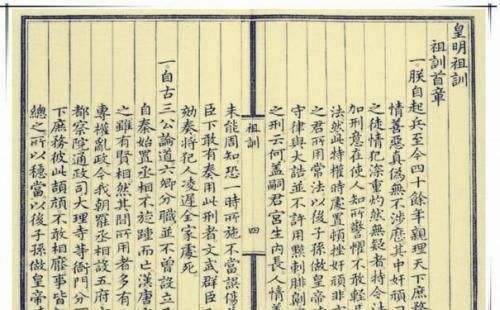 皇明祖訓
祖訓首章
一朕自起兵至今四十餘年親理天下庶務
情善惡真偽無不涉歷其中奸頑
之徒情犯深重灼然無疑者特令法
加刑意在使人知所警懼不敢輕
法然此特權時處置頓挫奸頑非
之君所用常法以後子孫做皇帝時
守律與大誥並不許用黥刺腓劓
之刑云何蓋嗣君宮生內長人情善
祖訓
四
未能周知恐一時所施不當誤傷
臣下敢有奏用此刑者文武群臣
劾奏將犯人凌遲全家處死
一自古三公論道六卿分職並不曾設立
自秦始置丞相不旋踵而亡漢唐
之雖有賢相然其間所用者多有
專權亂政今我朝罷丞相設五府六
都察院通政司大理寺等衙門分
下庶務彼此頡頏不敢相壓事皆
總之所以穩當以後子孫做皇帝